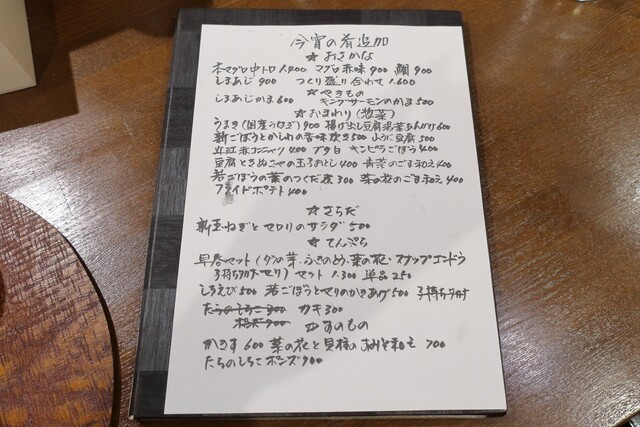 今宵の肴追加
☆ おさかな
本マグロ中トロ 1.400 マグロ赤味 900 鯛 900
しまあじ 900 つくり盛り合わせ 1.600
☆ やきもの
しまあじかま 600 キングサーモンのかま 500
☆ おまわり (惣菜)
うまき (国産うなぎ) 900 揚げ出し豆腐湯葉あんかけ 600
新ごぼうとかしわの香味炊き 500 山うに豆腐 500
近江赤コンニャク 400 ブタ白 キンピラごぼう 400
豆腐ときぬさやの玉子おとし 400 青菜のごま和え 400
若ごぼうの葉のつくだ煮 300 菜の花のごま和え 400
フライドポテト 400
☆ さらだ
新玉ねぎとセロリのサラダ 500
☆ てんぷら
早春セット (タラの芽、ふきのとう、菜の花・スナップエンドウ
子持ち セット 1.300 単品 250
しろえび 500 若ごぼうと のかきあげ 500 子持ち
たらのしらこ 300 カキ 300
ポン酢 900 ☆ すのもの
かきす 600 菜の花と貝柱の 和え 700
たちのしらこポンズ 900